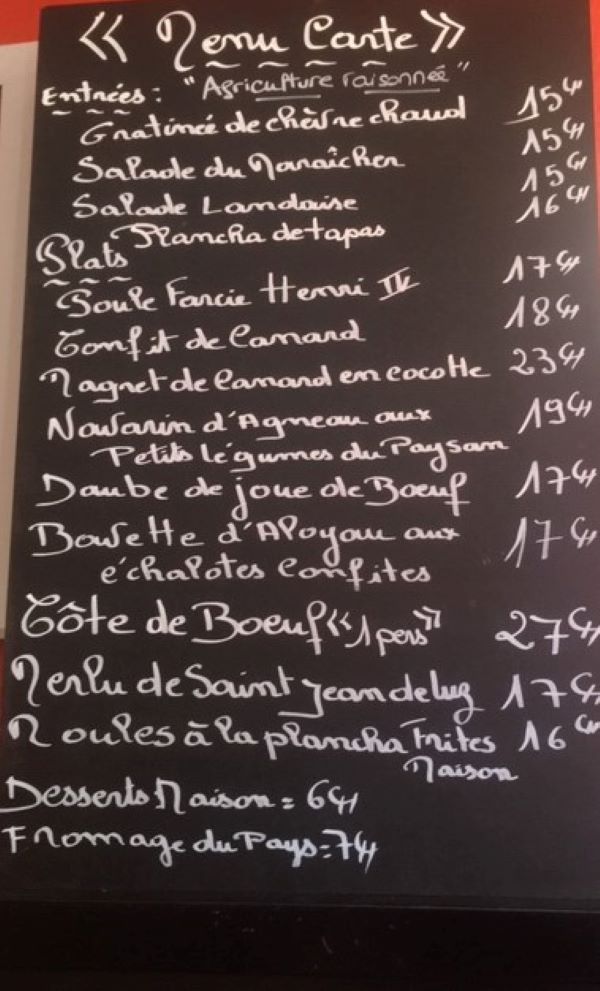 « Menu Carte »
"Agriculture raisonnée"
Entrées :
Gratinée de chèvre chaud 15€
Salade du Maraîcher 15€
Salade Landaise 15€
Plancha de tapas 16€
Plats
Poule Farcie Henri IV 17€
Confit de Canard 18€
Magret de Canard en cocotte 23€
Navarin d'Agneau aux 19€
Petits légumes du Paysan
Daube de joue de Boeuf 17€
Bavette d'Aloyau aux 17€
échalotes Confites
Côte de Boeuf «1 pers» 27€
Merlu de Saint Jean de luz 17€
Moules à la plancha Frites 16€
Maison
Desserts Maison = 6€
Fromage du Pays = 7€